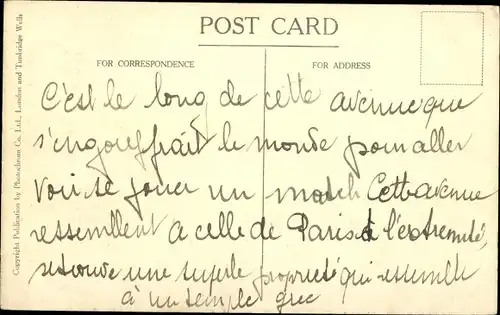 POST CARD
FOR CORRESPONDENCE
FOR ADDRESS
Copyright Publication by Photochrom Co. Ltd., London and Tunbridge Wells
C'est le long de cette avenue que
s'engouffrait le monde pour aller
voir se jouer un match Cette avenue
ressemblent a celle de Paris à l'extremité,
retrouve une superbe propriété qui ressemble
à un temple grec